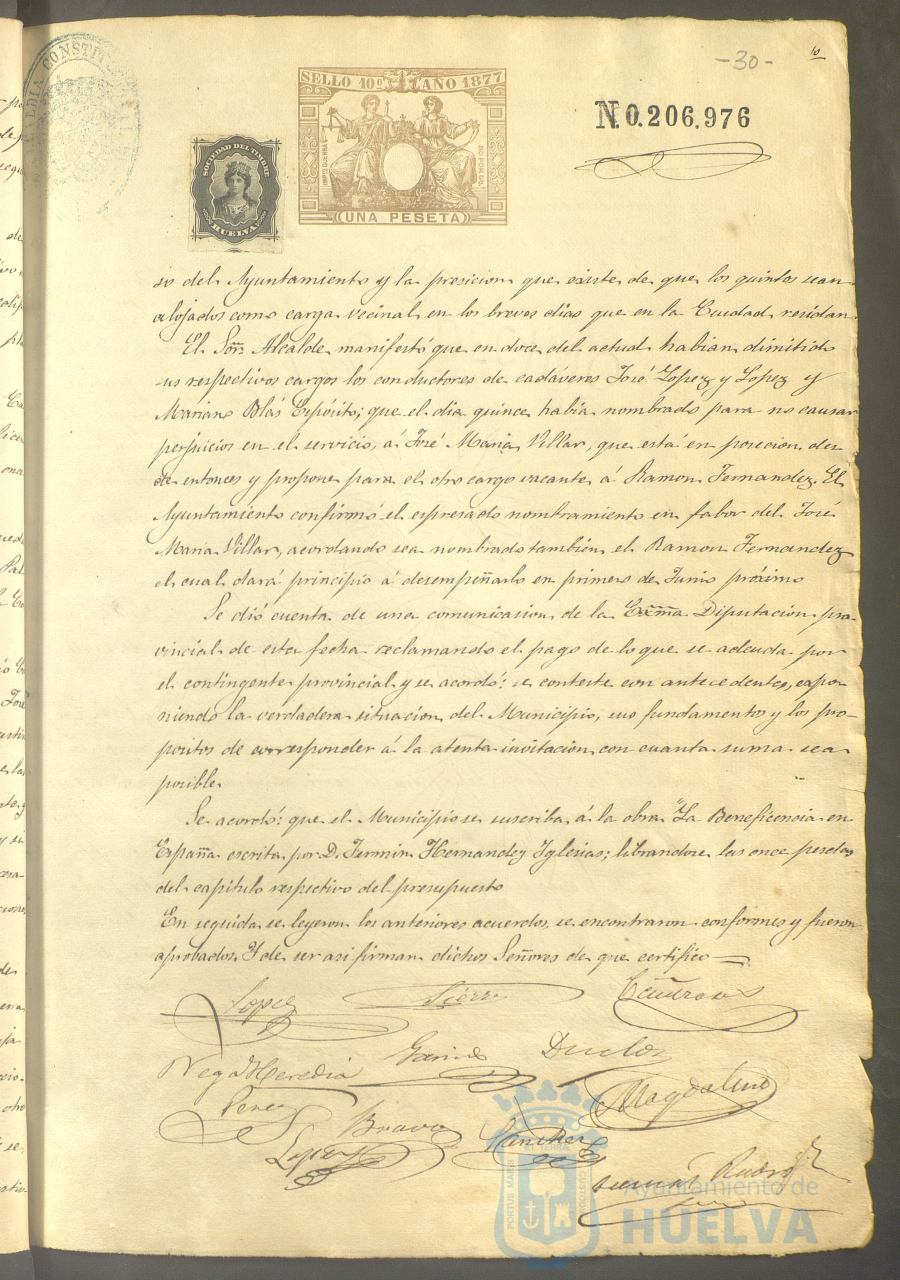 -30-
10
SELLO 10º AÑO 1877
IMPTO GUERRA
50 POR 100
UNA PESETA
N.0.206,976
ALCALDIA CONSTITUCIONAL
SOCIEDAD DEL TIMBRE
HUELVA
sio del Ayuntamiento y la presicion que existe de que los quintos sean
alojados como carga vecinal en los breves dias que en la Ciudad residan
El Soñr. Alcalde manifestó que en doce del actual habian dimitido
sus respectivos cargos los conductores de cadáveres José Lopez y Lopez y
Mariano Blás Espósito; que el dia quince habia nombrado para no causar
perjuicios en el servicio, á José Maria Villar, que está en posecion des-
de entonces y propone para el otro cargo vacante á Ramon Fernandez. El
Ayuntamiento confirmó el espresado nombramiento en fabor del José
Maria Villar, acordando sea nombrado tambien el Ramon Fernandez
el cual dará principio á desempeñarlo en primero de Junio próximo
Se dió cuenta de una comunicasion de la Exmã Diputacion pro-
vincial de esta fecha reclamando el pago de lo que se adeuda por
el contingente provincial y se acordó: se conteste con antecedentes, expo-
niendo la verdadera situacion del Municipio, sus fundamentos y los pro-
pósitos de corresponder á la atenta invitacion con cuanta suma sea
posible
Se acordó: que el Municipio se suscriba á la obra "La Beneficencia en
España escrita por D. Fermin Hernandez Iglesias; librandose las once pesetas
del capitulo respectivo del presupuesto
En seguida se leyeron los anteriores acuerdos, se encontraron conformes y fueron
aprobados. Y de ser asi firman dichos Señores de que certifico
Lopez Sierra
Vega Heredia Garcia Duclos
Perez Bravo Magdaleno
Lopez Sanchez
PORTUS MARIS
Ayuntamiento de
HUELVA